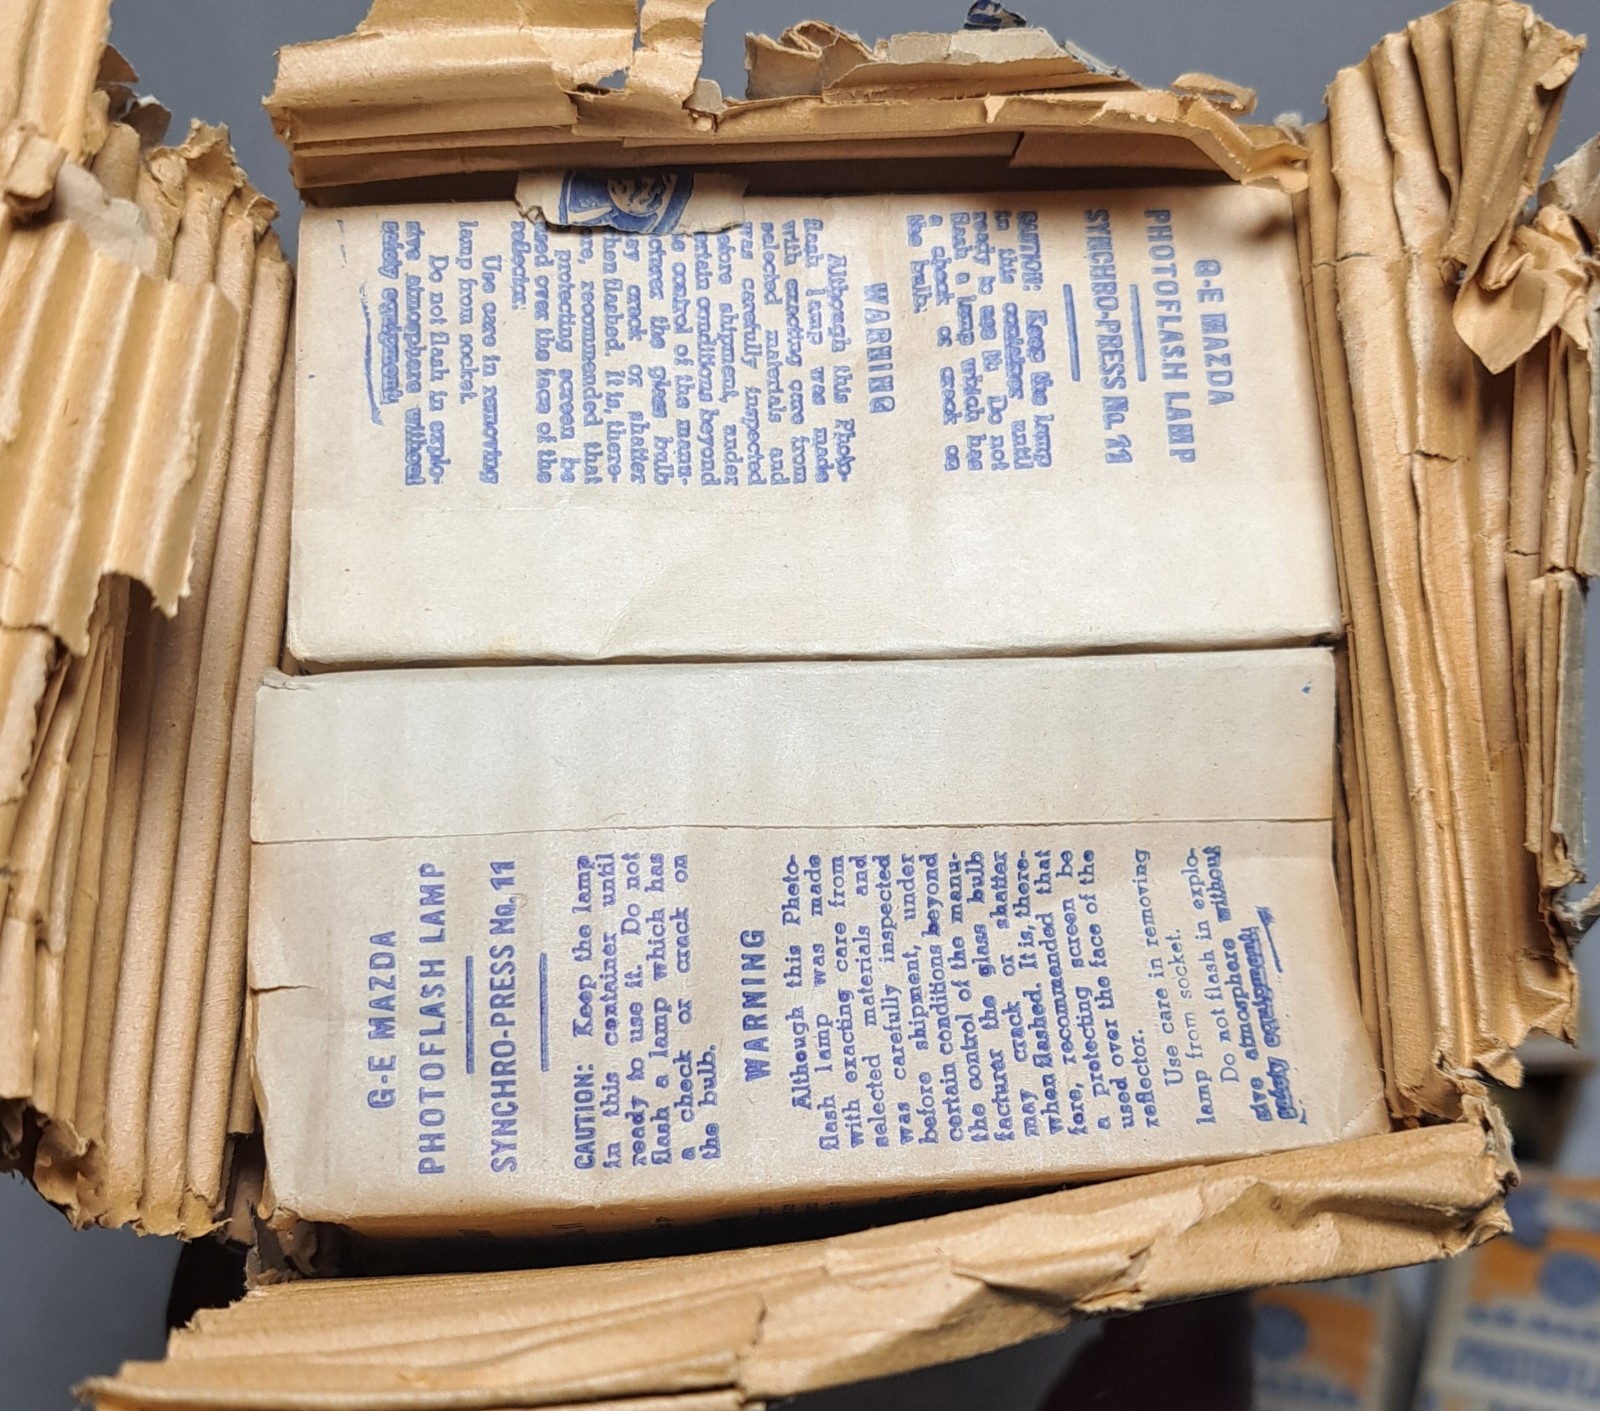 G-E MAZDA
PHOTOFLASH LAMP
SYNCHRO-PRESS No. 11
CAUTION: Keep the lamp
in this container until
ready to use it. Do not
flash a lamp which has
a check or crack on
the bulb.
WARNING
Although this Photo-
flash lamp was made
with exacting care from
selected materials and
was carefully inspected
before shipment, under
certain conditions beyond
the control of the manu-
facturer the glass bulb
may crack or shatter
when flashed. It is, there-
fore, recommended that
a protecting screen be
used over the face of the
reflector.
Use care in removing
lamp from socket.
Do not flash in explo-
sive atmosphere without
safety equipment.
G-E MAZDA
PHOTOFLASH LAMP
SYNCHRO-PRESS No. 11
CAUTION: Keep the lamp
in this container until
ready to use it. Do not
flash a lamp which has
a check or crack on
the bulb.
WARNING
Although this Photo-
flash lamp was made
with exacting care from
selected materials and
was carefully inspected
before shipment, under
certain conditions beyond
the control of the manu-
facturer the glass bulb
may crack or shatter
when flashed. It is, there-
fore, recommended that
a protecting screen be
used over the face of the
reflector.
Use care in removing
lamp from socket.
Do not flash in explo-
sive atmosphere without
safety equipment.